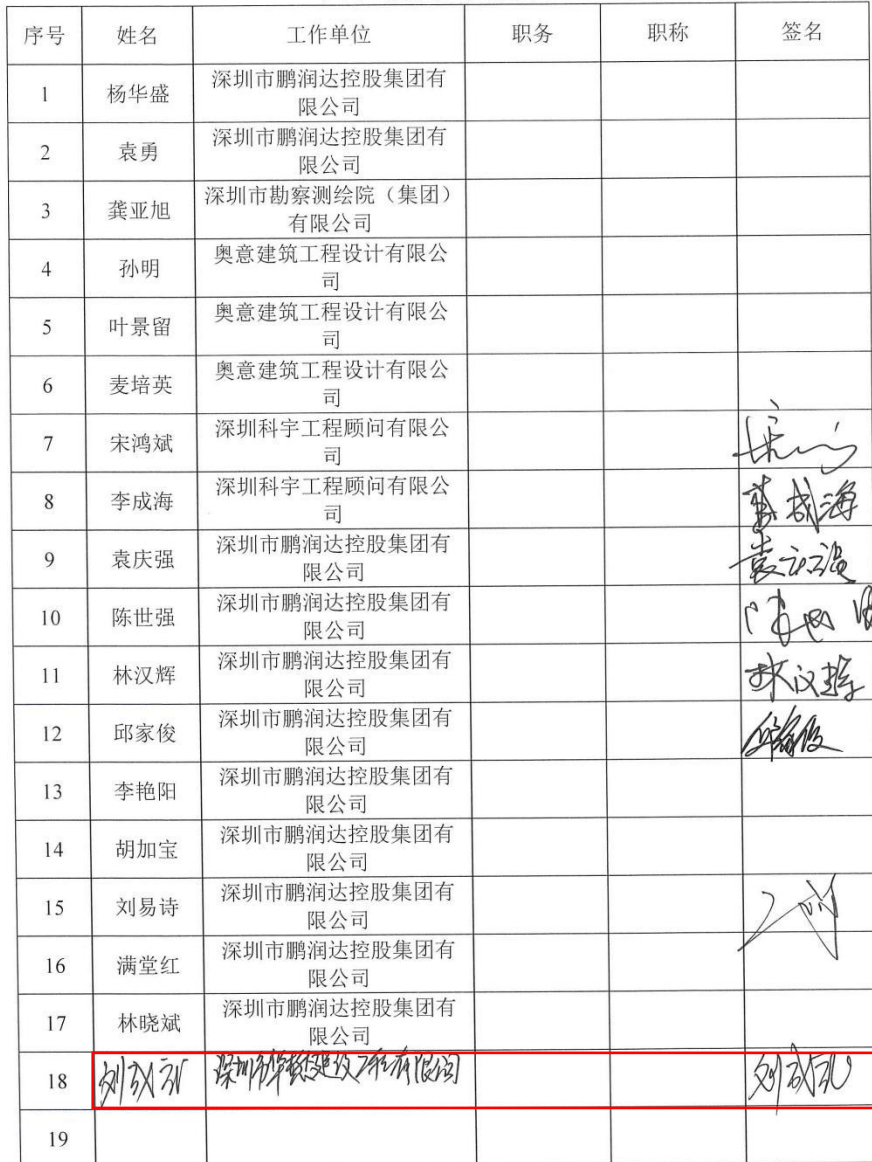 序号 姓名 工作单位 职务 职称 签名
1 杨华盛 深圳市鹏润达控股集团有
限公司
2 袁勇 深圳市鹏润达控股集团有
限公司
3 龚亚旭 深圳市勘察测绘院（集团）
有限公司
4 孙明 奥意建筑工程设计有限公
司
5 叶景留 奥意建筑工程设计有限公
司
6 麦培英 奥意建筑工程设计有限公
司
7 宋鸿斌 深圳科宇工程顾问有限公
司
8 李成海 深圳科宇工程顾问有限公 李成海
司
9 袁庆强 深圳市鹏润达控股集团有 袁庆强
限公司
10 陈世强 深圳市鹏润达控股集团有
限公司
11 林汉辉 深圳市鹏润达控股集团有 林汉辉
限公司
12 邱家俊 深圳市鹏润达控股集团有 邱家俊
限公司
13 李艳阳 深圳市鹏润达控股集团有
限公司
14 胡加宝 深圳市鹏润达控股集团有
限公司
15 刘易诗 深圳市鹏润达控股集团有
限公司
16 满堂红 深圳市鹏润达控股集团有
限公司
17 林晓斌 深圳市鹏润达控股集团有
限公司
18 刘 深圳市华 建设工程有限公司 刘
19